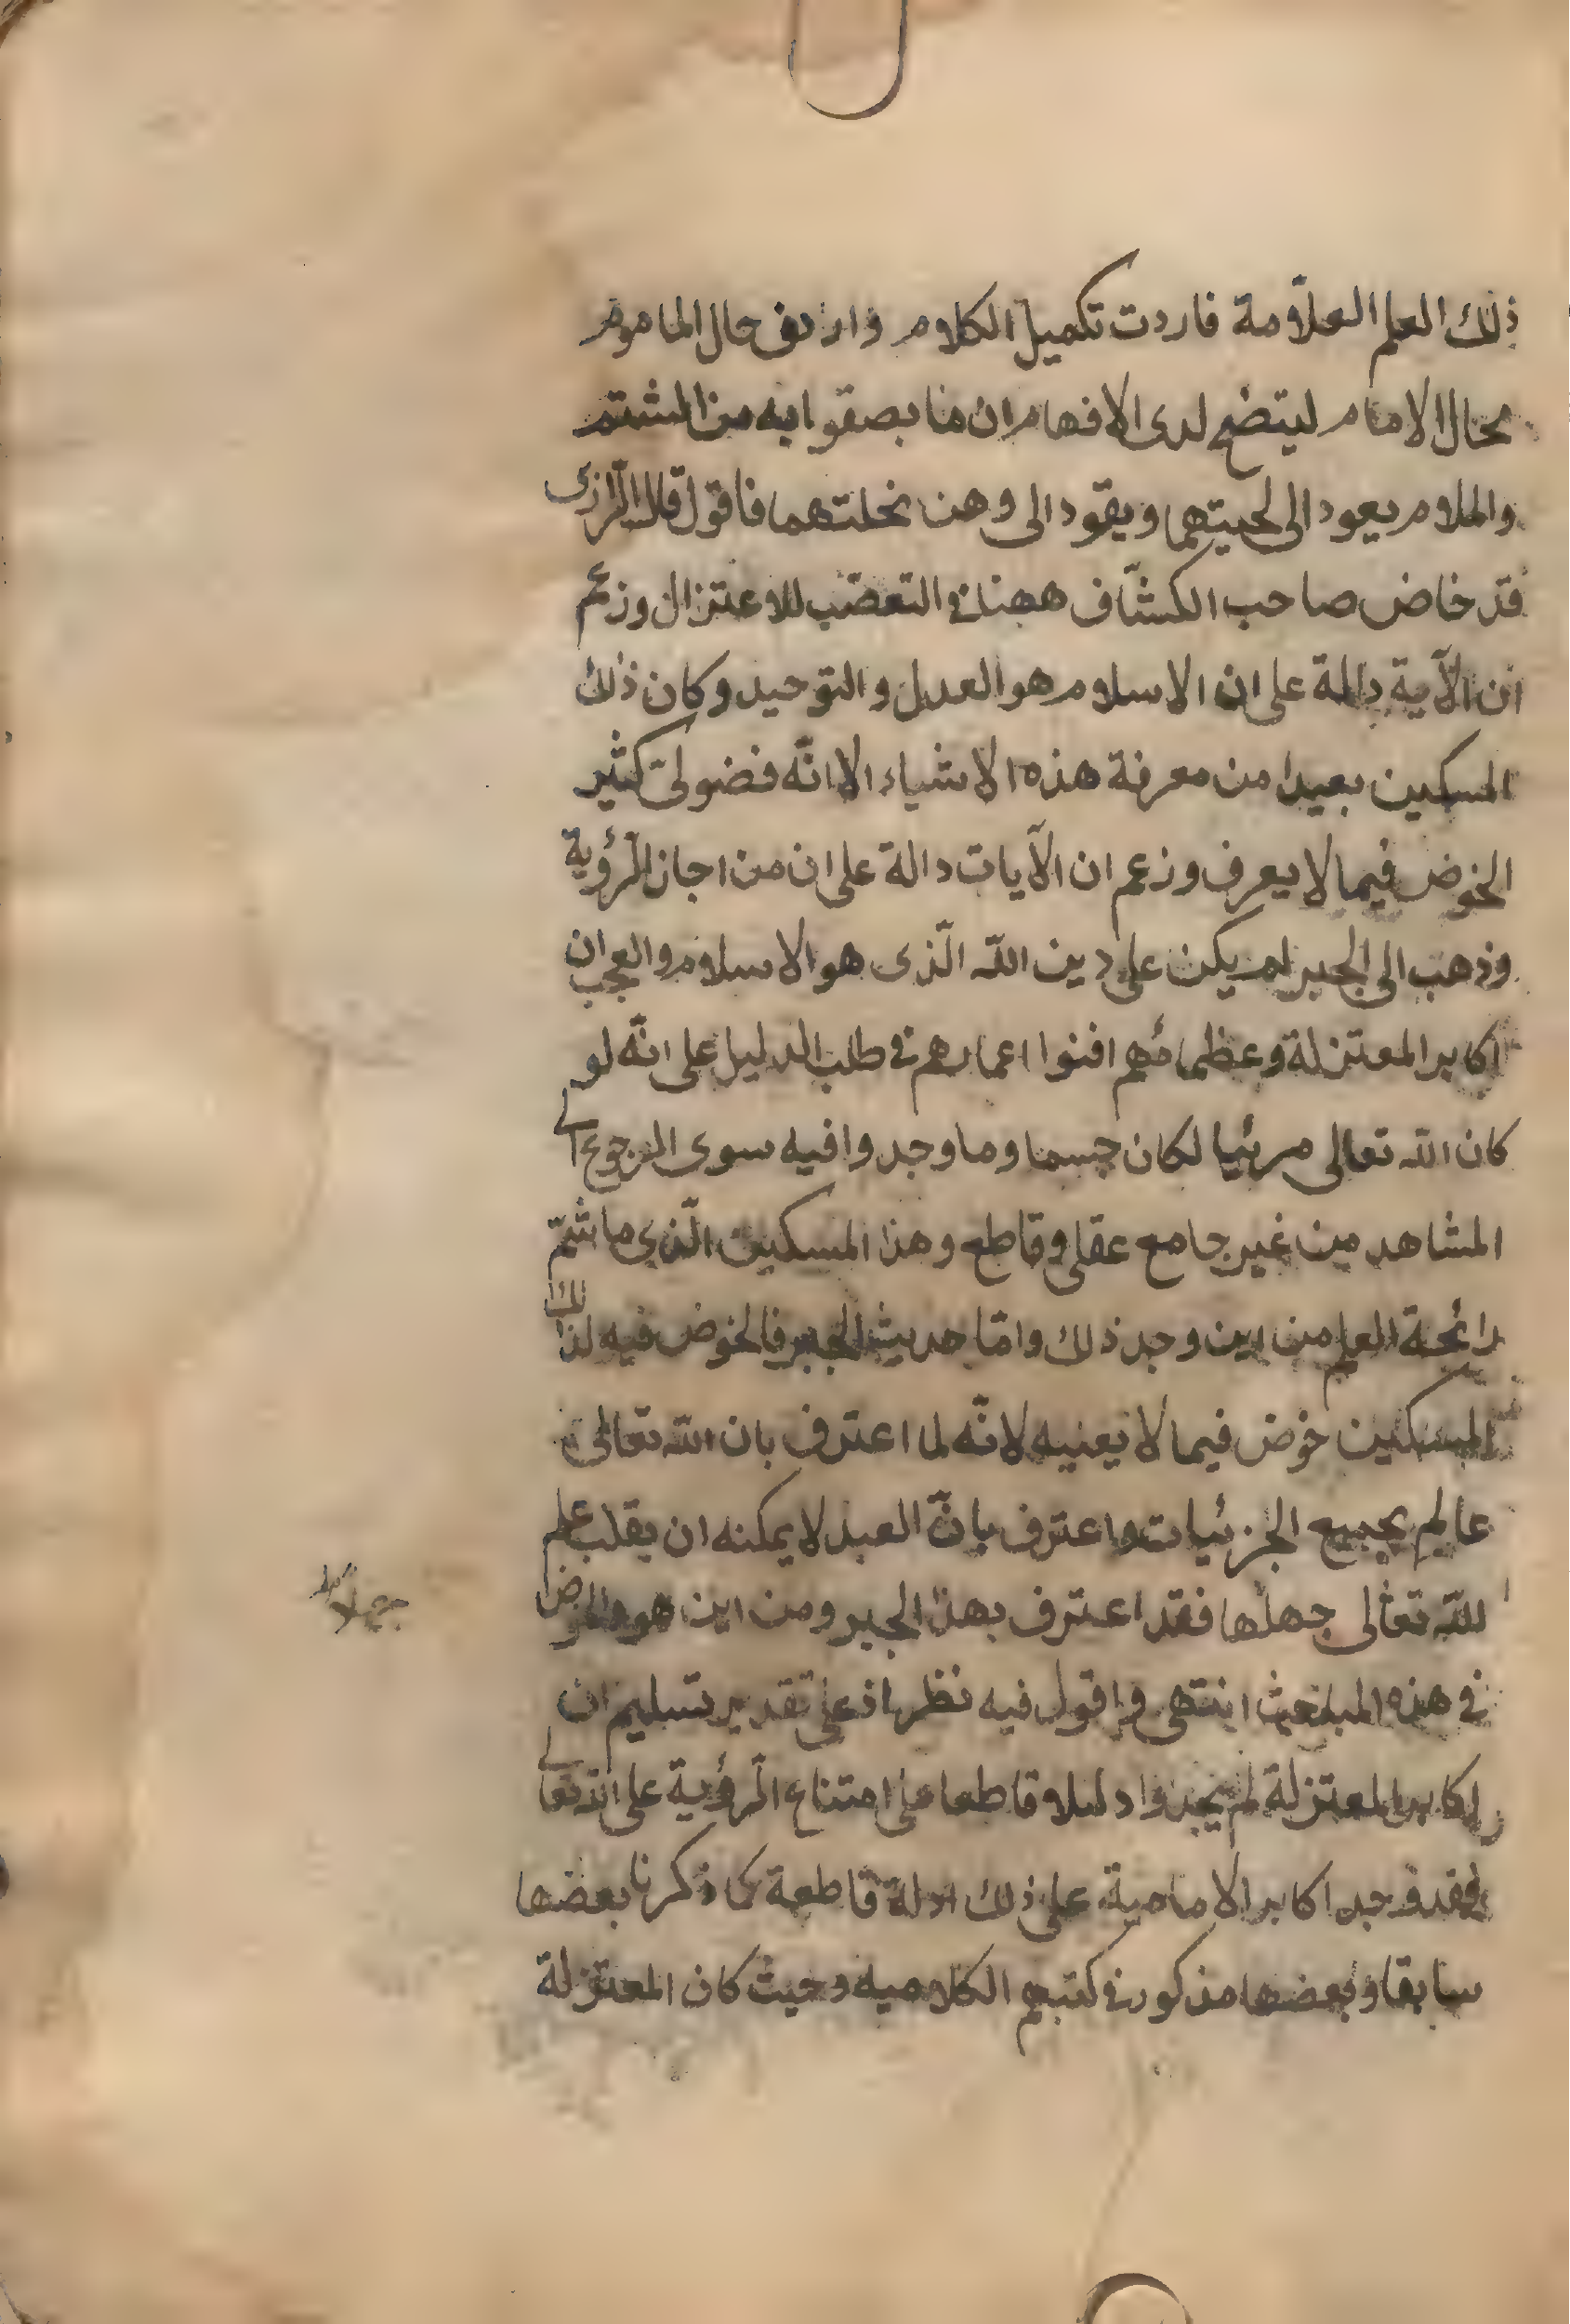 ذلك العلم العلّامة فاردت تكميل الكلام واردف حال الماموم
بحال الامام ليتضح لدى الافهام ان ما بصقوا به من الشتم
والملام يعود الى لحيتهما ويقود الى وهن نحلتهما فاقول قال الرّازى
قد خاض صاحب الكشّاف ههنا فى التعصّب للاعتزال وزعم
ان الآية دالة على ان الاسلام هو العدل و التوحيد وكان ذلك
المسكين بعيدا من معرفة هذه الاشياء الا انّه فضولىّ كثير
الخوض فيما لا يعرف وزعم ان الآيات دالة على ان من اجاز الرّؤية
وذهب الى الجبر لم يكن على دين اللّه الّذى هو الاسلام والعجب ان
اكابر المعتزلة وعظمائهم افنوا اعمارهم فى طلب الدليل على انّه لو
كان اللّه تعالى مرئيا لكان جسما وما وجدوا فيه سوى الرجوع الى
المشاهد من غير جامع عقلى وقاطع وهذا المسكين الّذى ما شمّ
رائحة العلم من اين وجد ذلك وامّا حديث الجبر فالخوض فيه لذلك
المسكين خوض فيما لا يعنيه لانّه لما اعترف بان اللّه تعالى
عالم بجميع الجزئيات واعترف بانّ العبد لا يمكنه ان يقلب علم
اللّه تعالى جهلها فقد اعترف بهذا الجبر ومن اين هو والخوض
جهلا
فى هذه المباحث انتهى واقول فيه نظر اذ على تقدير تسليم ان
اكابر المعتزلة لم يجدوا دليلا قاطعا على امتناع الرّؤية على اللّه تعالى
فقد وجد اكابر الامامية على ذلك ادلة قاطعة كما ذكرنا بعضها
سابقا وبعضها مذكور فى كتبهم الكلاميه وحيث كان المعتزلة